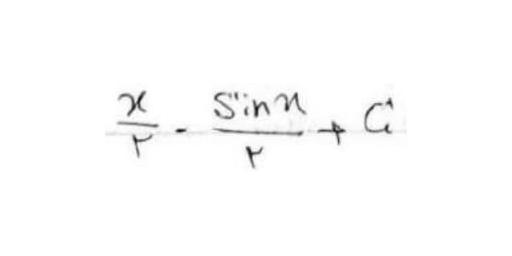 x/۲ - sin x/۲ + C